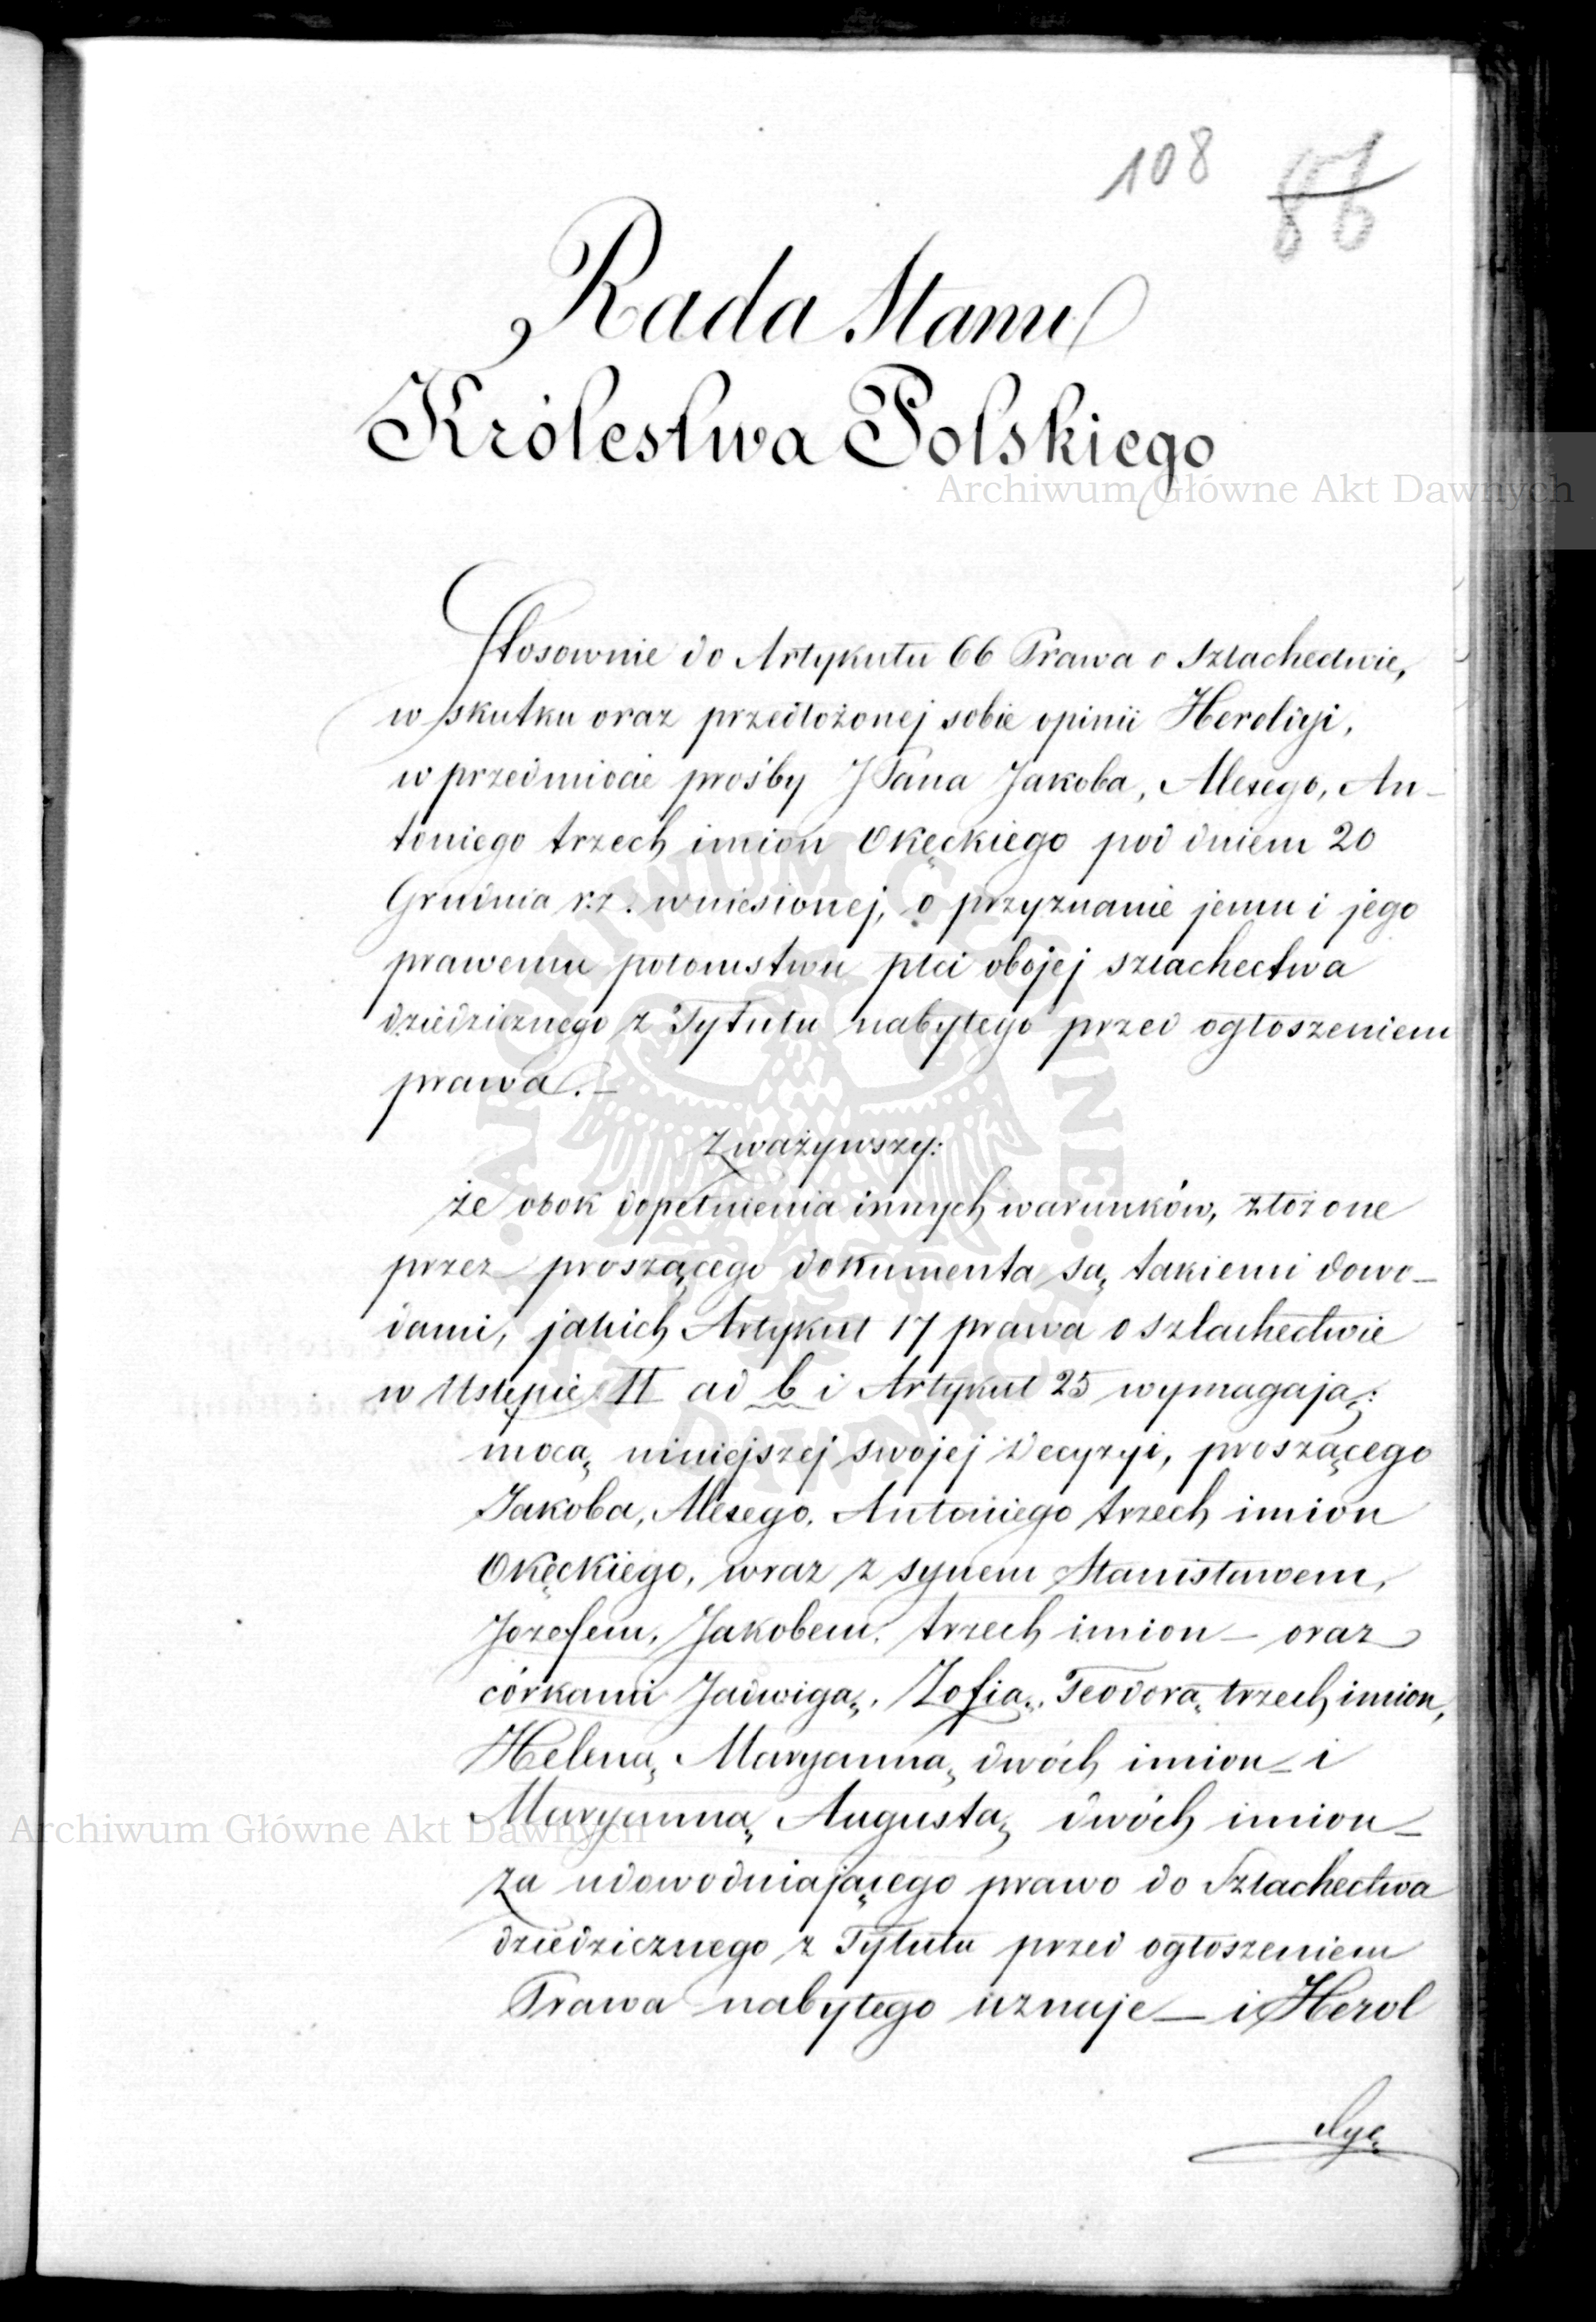 108 86
Rada Stanu
Królestwa Polskiego
Archiwum Główne Akt Dawnych
Stosownie do Artykułu 66 Prawa o Szlachectwie,
w skutku oraz przedłożonej sobie opinii Heroldyi,
w przedmiocie prośby JPana Jakoba, Alexego, An-
toniego trzech imion Okęckiego pod dniem 20
Grudnia r.z. wniesionej, o przyznanie jemu i jego
prawemu potomstwu płci obojej szlachectwa
dziedzicznego z Tytułu nabytego przed ogłoszeniem
prawa.—
Zważywszy:
że obok dopełnienia innych warunków, złożone
przez proszącego dokumenta są takiemi dowo-
dami, jakich Artykuł 17 prawa o szlachectwie
w Ustępie II ad b i Artykuł 25 wymagają:
mocą niniejszej swojej Decyzyi, proszącego
Jakoba, Alexego, Antoniego trzech imion
Okęckiego, wraz z synem Stanisławem,
Jozefem, Jakobem, trzech imion — oraz
córkami Jadwigą, Zofią, Teodorą trzech imion,
Heleną, Maryanną dwóch imion — i
Maryanną Augustą dwóch imion —
Archiwum Główne Akt Dawnych
za udowodniającego prawo do Szlachectwa
dziedzicznego z Tytułu przed ogłoszeniem
Prawa nabytego uznaje — i Herol
dyę
ARCHIWUM GŁÓWNE AKT DAWNYCH